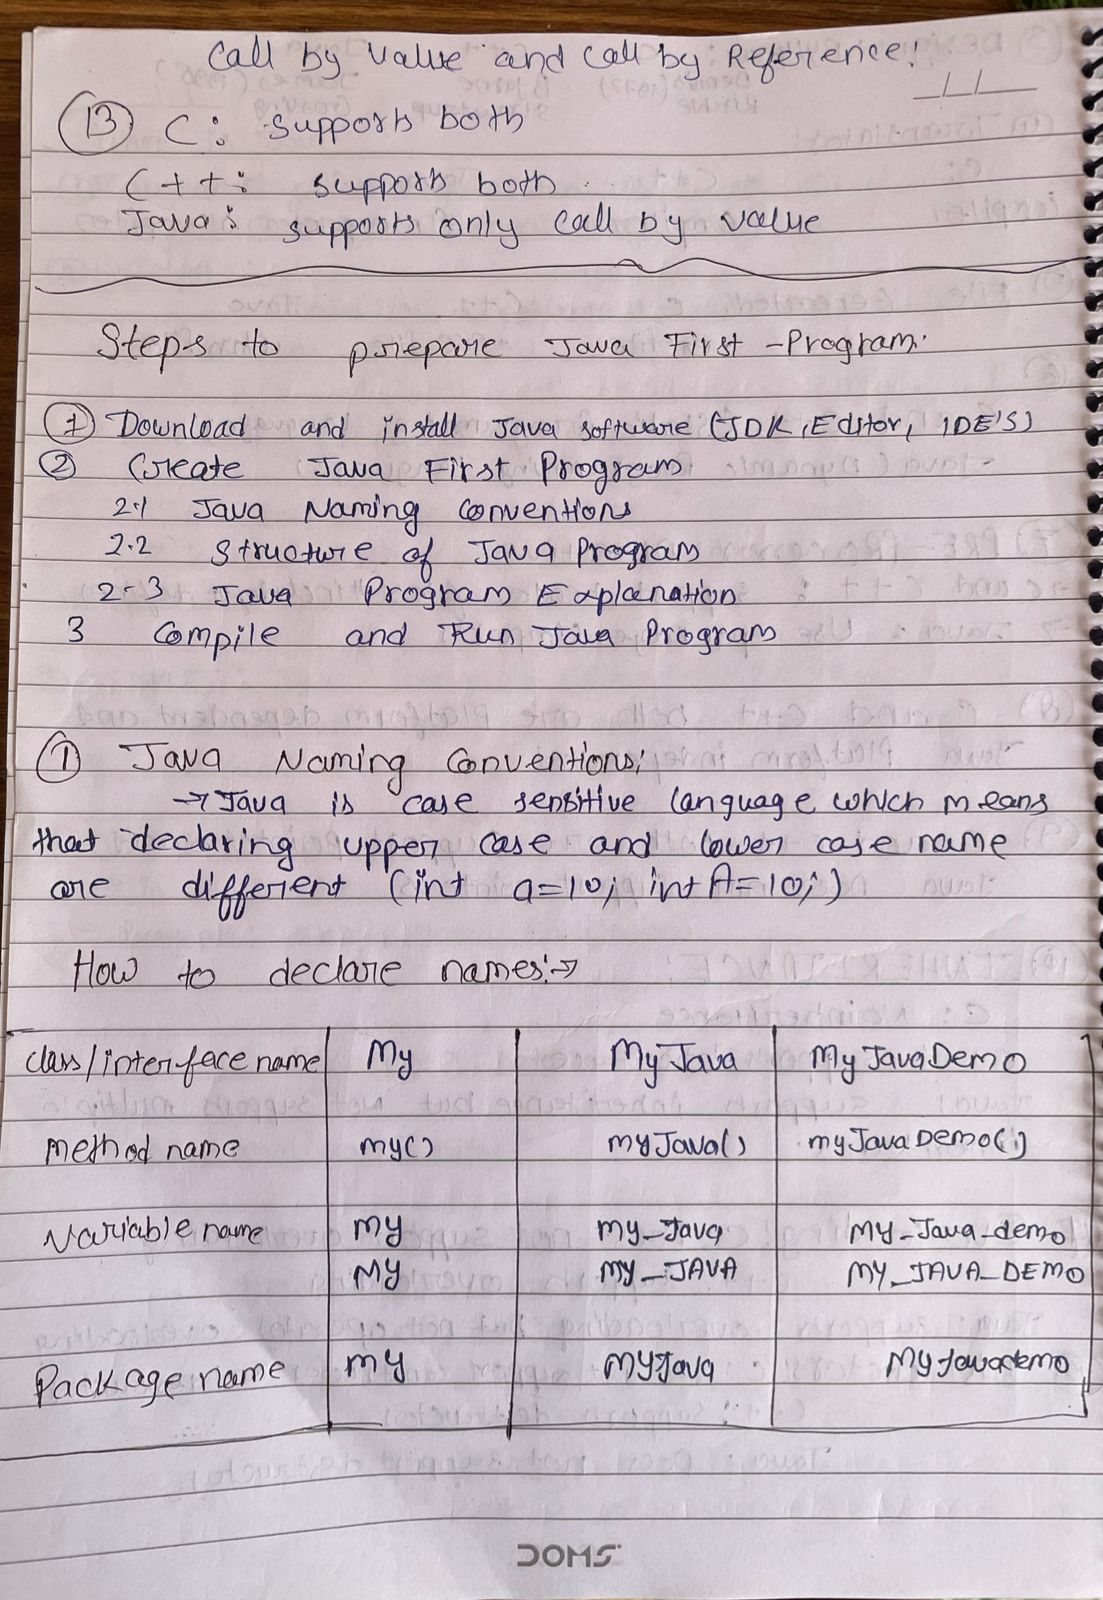 Call by Value and Call by Reference!
13 C: supports both
C++: supports both.
Java: supports only Call by value
Steps to prepare Java First-Program.
1 Download and install Java software (JDK, Editor, IDE'S)
2 Create Java First Program
2.1 Java Naming Conventions
2.2 Structure of Java Program
2.3 Java Program Explanation
3 Compile and Run Java Program
1 Java Naming Conventions;
→ Java is case sensitive language which means
that declaring upper case and lower case name
are different (int a=10; int A=10;)
How to declare names:→
class/interface name My MyJava MyJavaDemo
Method name my() myJava() myJavaDemo()
Variable name my my_Java my_Java_demo
MY MY_JAVA MY_JAVA_DEMO
Package name my myjava myjavademo
DOMS